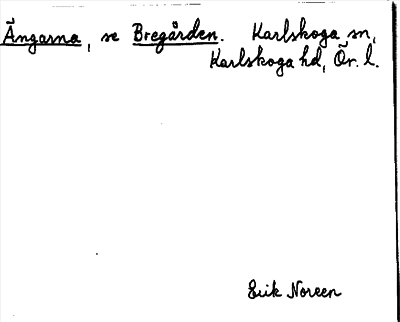 Ängarna, se Bregården. Karlskoga sn,
Karlskoga hd, Ör. l.
Erik Noreen